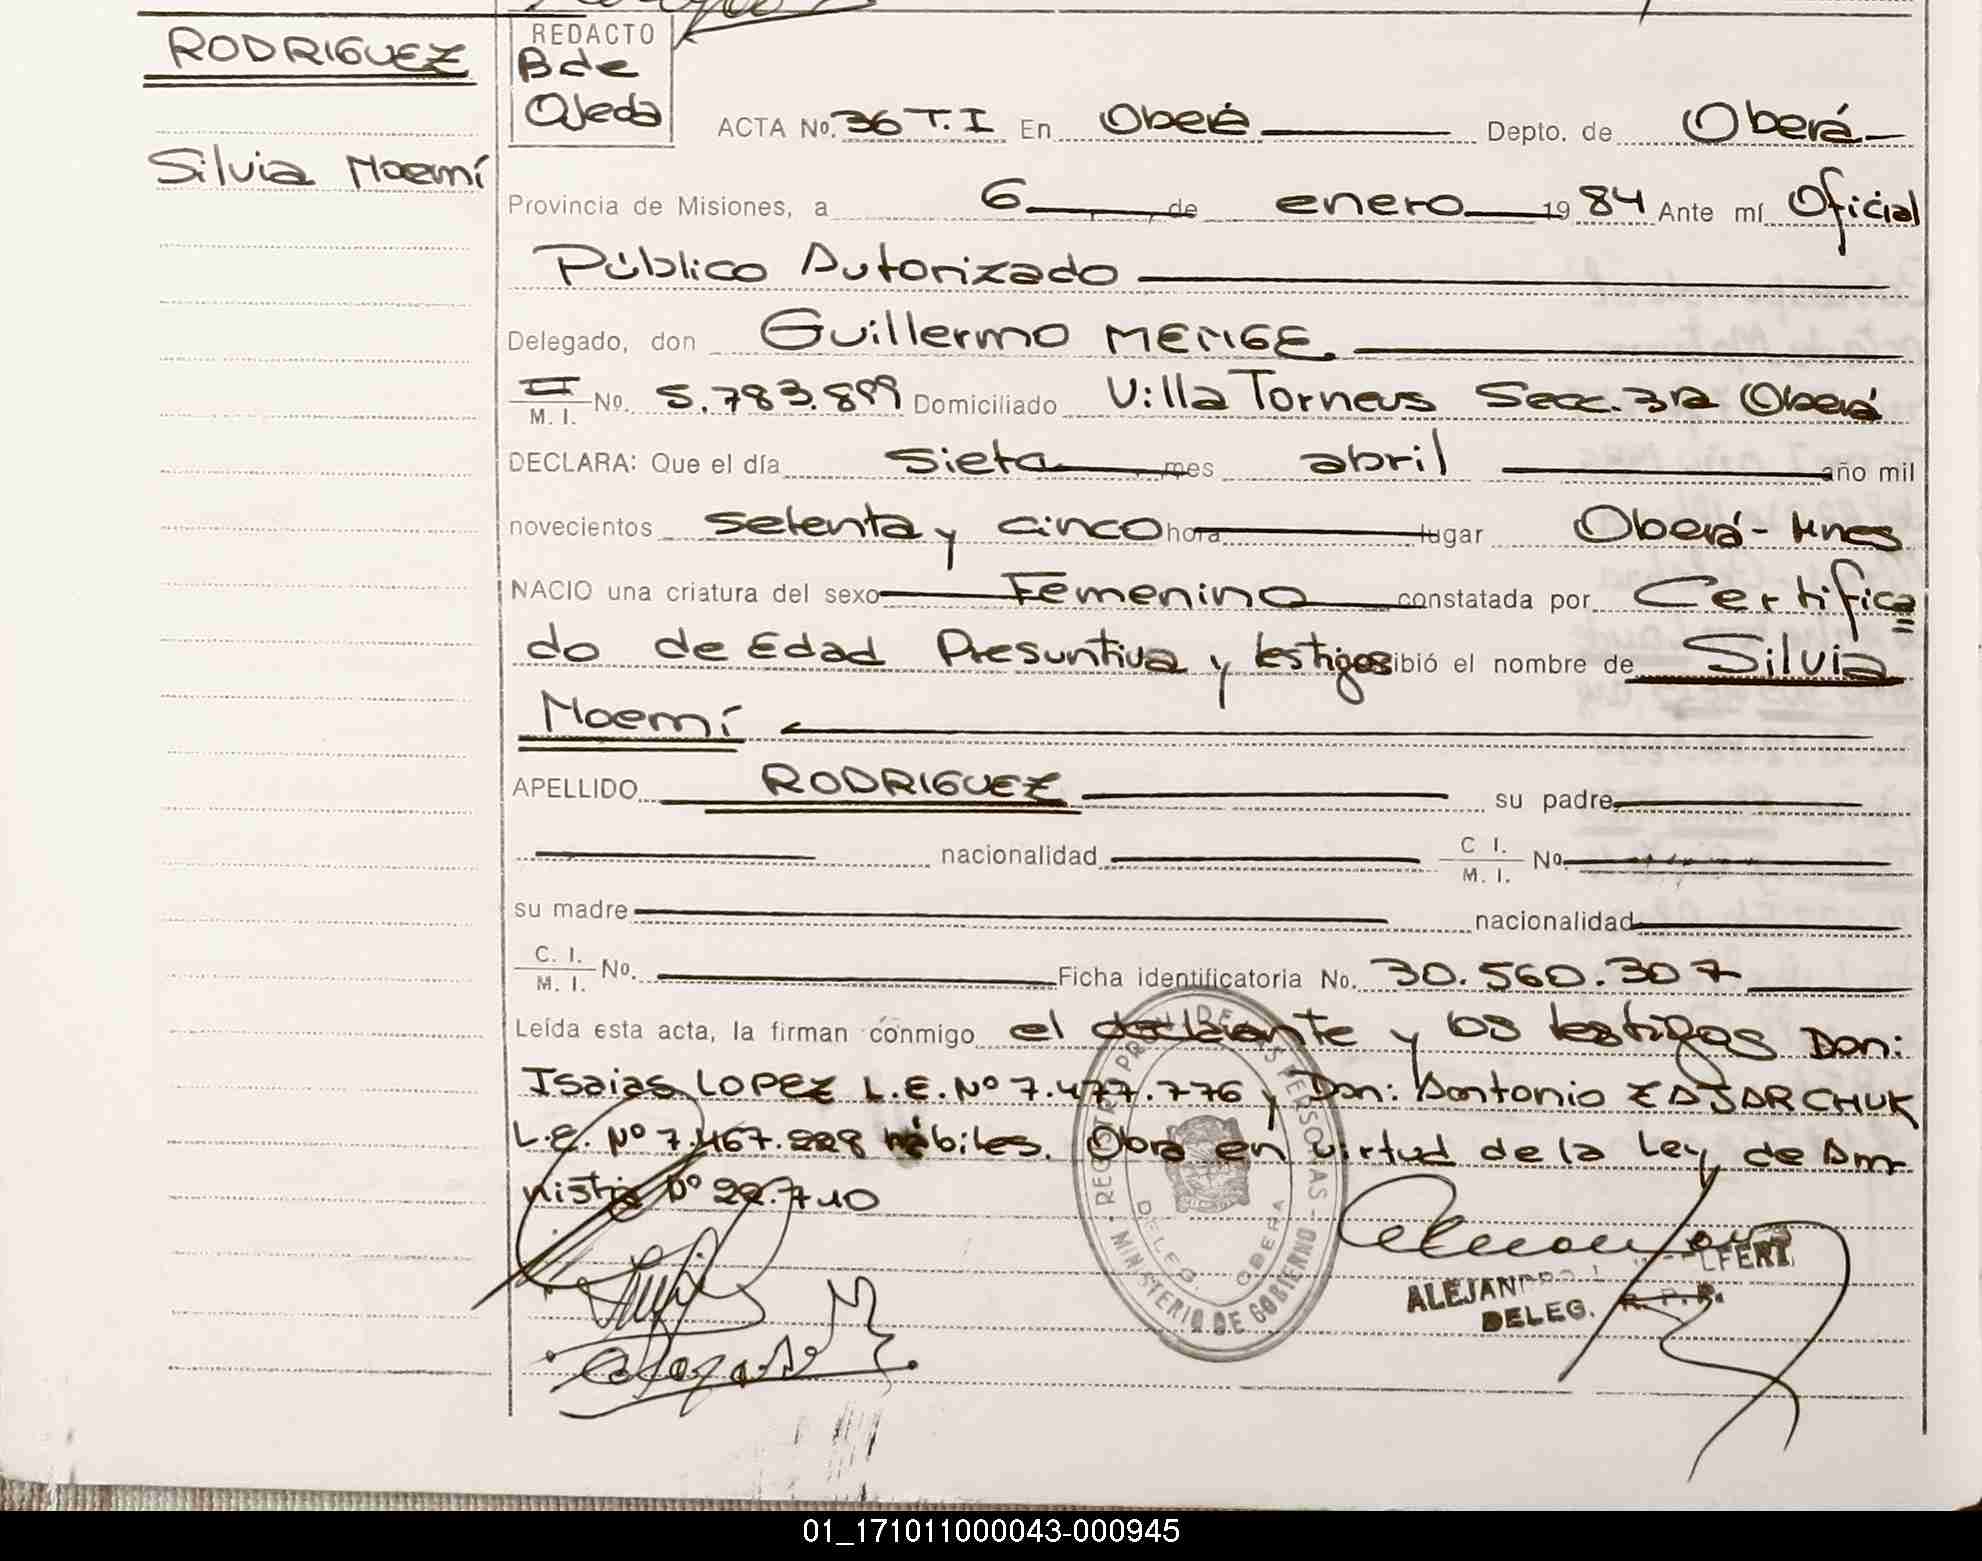 RODRIGUEZ
Silvia Noemí
REDACTO
B de
Ojeda
ACTA No. 36 T.I En Oberá Depto. de Oberá
Provincia de Misiones, a 6 de enero 1984 Ante mí Oficial
Público Autorizado
Delegado, don Guillermo MENGE
II M. I. No. 5.783.899 Domiciliado Villa Torneus Secc. 3ra Oberá
DECLARA: Que el día siete mes abril año mil
novecientos setenta y cinco hora lugar Oberá - Mnes
NACIO una criatura del sexo Femenino constatada por Certifica
do de Edad Presuntiva y testigos ibió el nombre de Silvia
Noemí
APELLIDO RODRIGUEZ su padre
nacionalidad C I. M. I. No.
su madre nacionalidad
C. I. M. I. No. Ficha identificatoria No. 30.560.307
Leída esta acta, la firman conmigo el declarante y los testigos Don:
Isaias LOPEZ L.E. Nº 7.477.776 y Don: Antonio ZAJARCHUK
L.E. Nº 7.467.228 hábiles. Obra en virtud de la Ley de Am
nistia Nº 22.710
MINISTERIO DE GOBIERNO
DELEG. OBERA
DELEG. R. P. P.
01_171011000043-000945